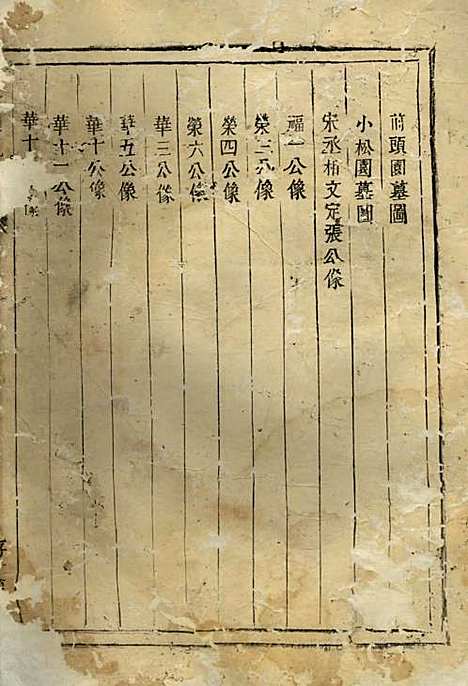 前頭園墓圖
小松園墓圖
宋丞相文定張公像
福一公像
榮三公像
榮四公像
榮六公像
華三公像
華五公像
華十公像
華十一公像
華十